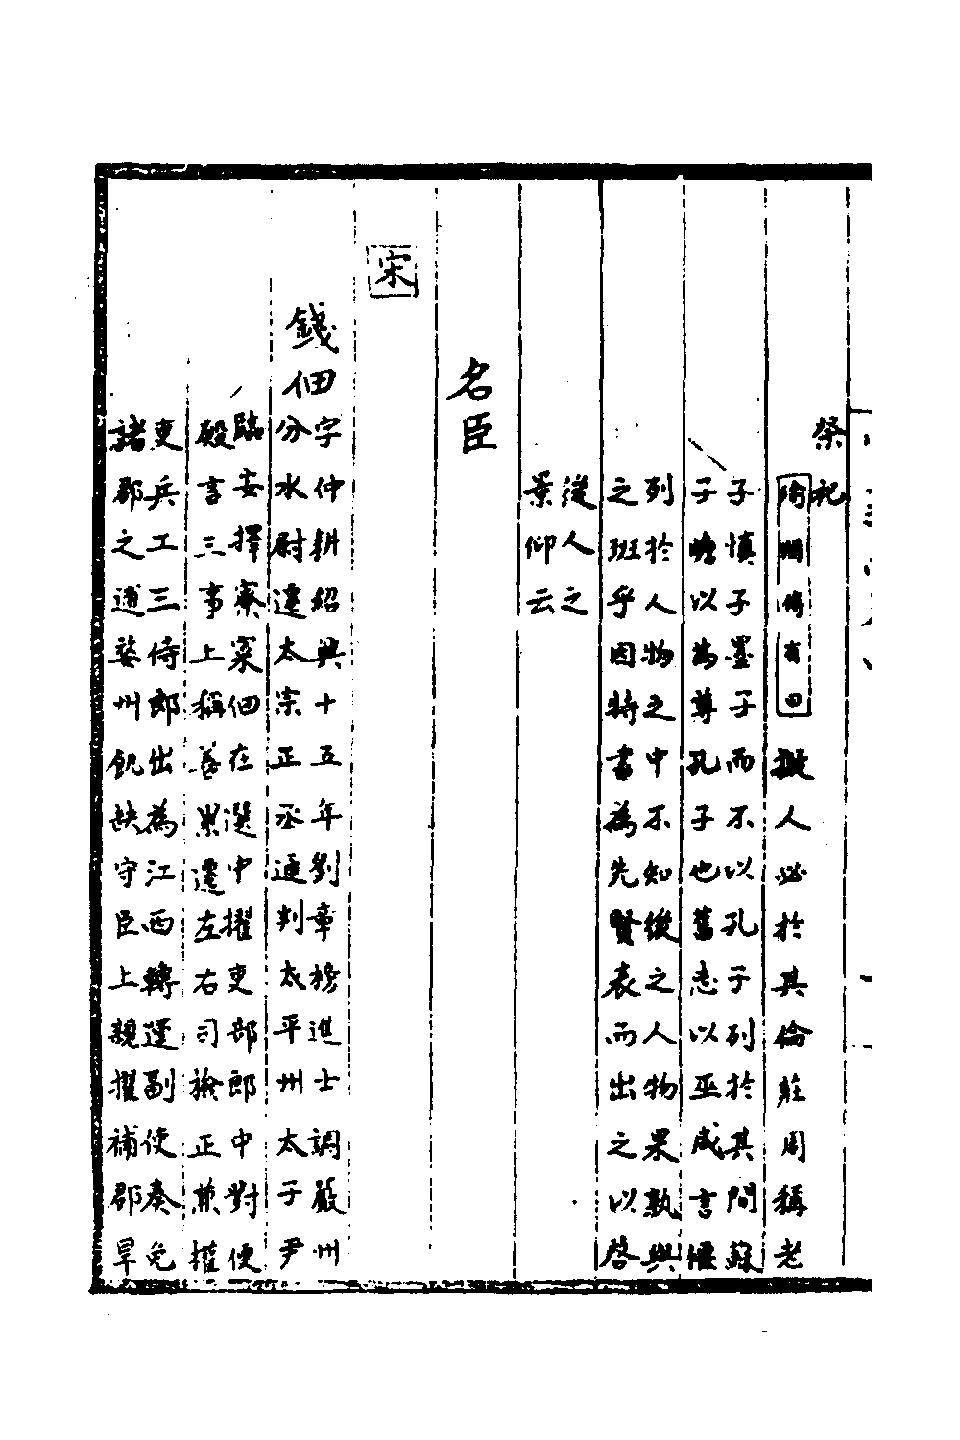 祭祀
擬人必於其倫莊周稱老
子慎子墨子而不以孔子列於其間蘇
子瞻以為尊孔子也舊志以巫咸言偃
列於人物之中不知後之人物果孰與
之班乎因特書為先賢表而出之以啓
後人之
景仰云
名臣
宋
錢佃
字仲耕紹興十五年劉章榜進士調嚴州
分水尉遷太宗正丞通判太平州太子尹
臨安擇寮寀佃在選中擢吏部郎中對便
殿言三事上稱善累遷左右司檢正兼權
吏兵工三侍郎出為江西轉運副使奏免
諸郡之逋婺州飢缺守臣上親擢補郡旱